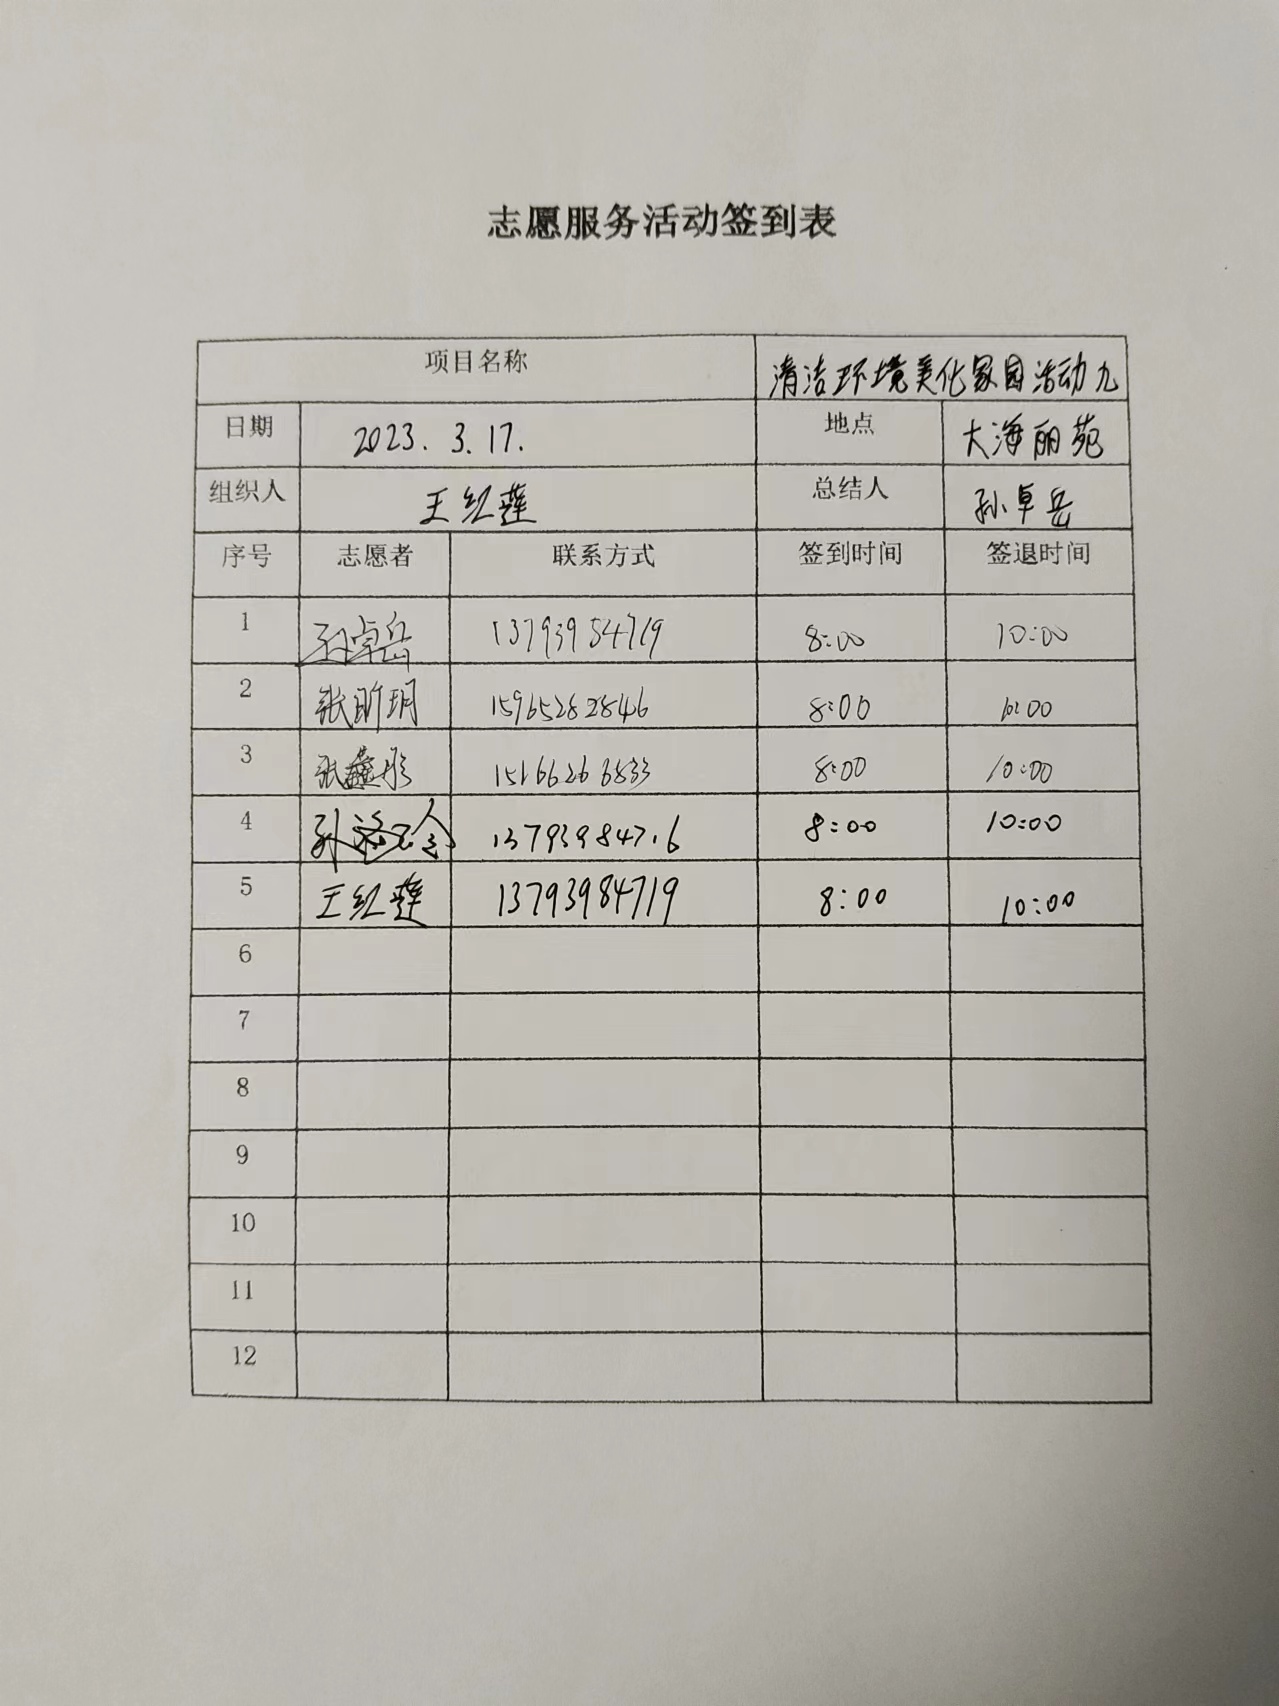 志愿服务活动签到表
项目名称 清洁环境美化家园活动九
日期 2023.3.17. 地点 大海丽苑
组织人 王红莲 总结人 孙卓岳
序号 志愿者 联系方式 签到时间 签退时间
1 孙卓岳 13793954719 8:00 10:00
2 张昕玥 15965282846 8:00 10:00
3 张鑫彤 15166266833 8:00 10:00
4 孙 13793984716 8:00 10:00
5 王红莲 13793984719 8:00 10:00
6
7
8
9
10
11
12